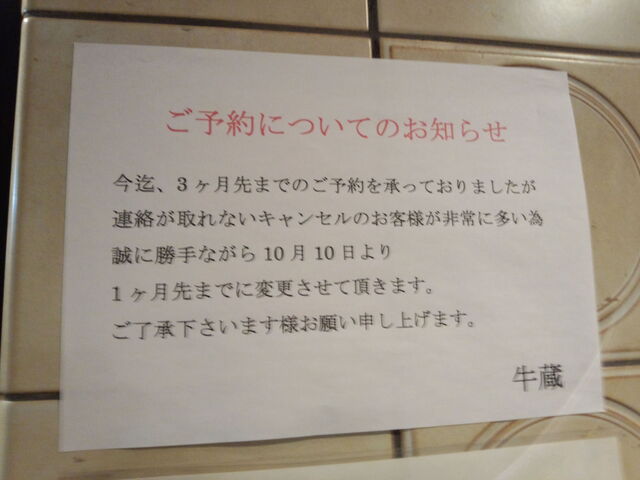 ご予約についてのお知らせ
今迄、3ヶ月先までのご予約を承っておりましたが
連絡が取れないキャンセルのお客様が非常に多い為
誠に勝手ながら10月10日より
1ヶ月先までに変更させて頂きます。
ご了承下さいます様お願い申し上げます。
牛蔵